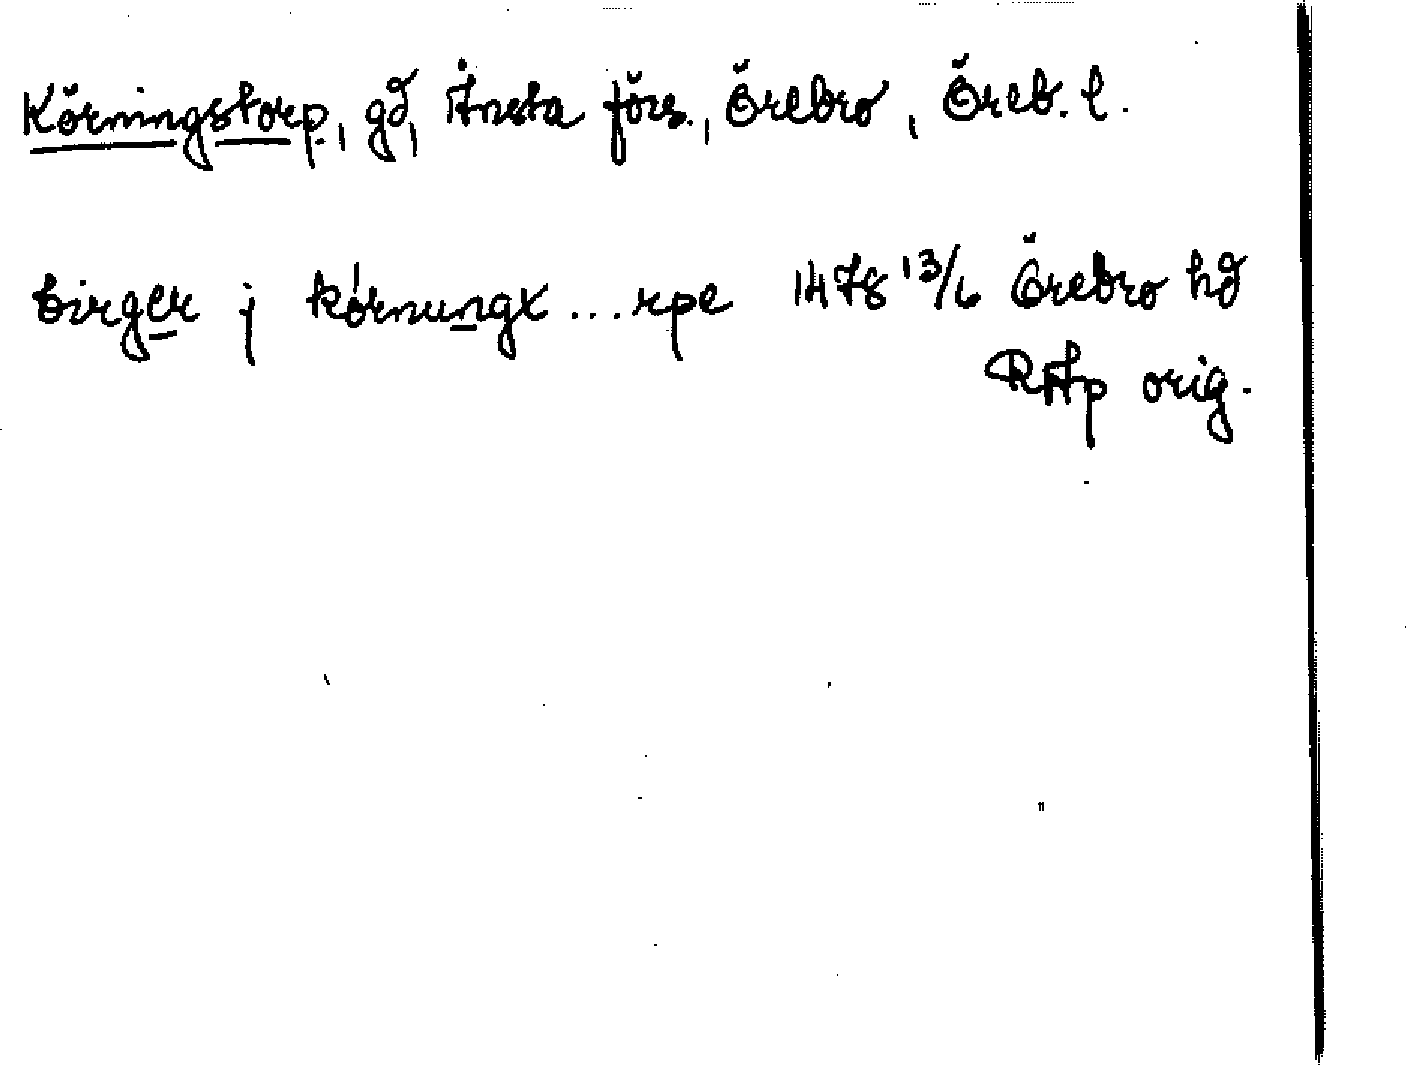 Körningstorp, gd, Ånsta förs., Örebro, Öreb. l.
birger j kórnungx ... rpe 1478 13/6 Örebro hd
RAp orig.